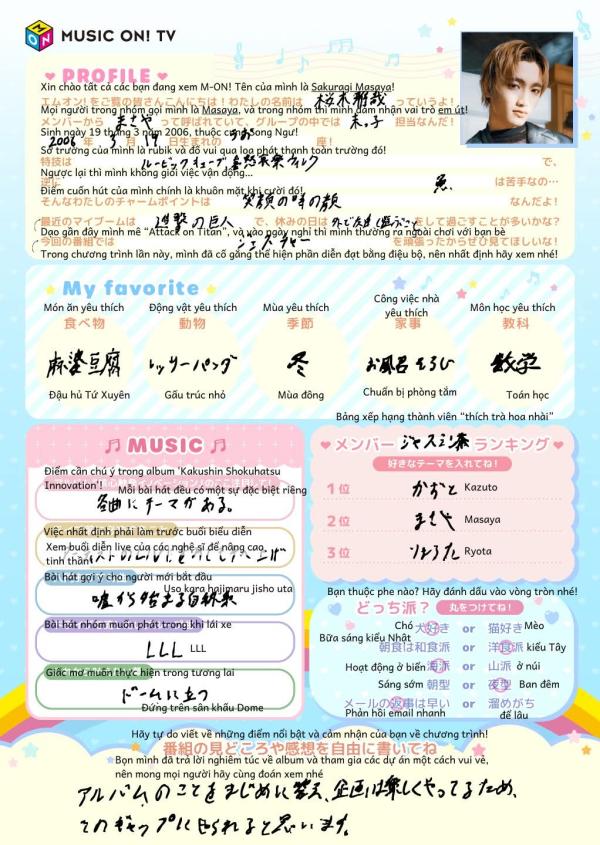 MUSIC ON! TV
PROFILE
Xin chào tất cả các bạn đang xem M-ON! Tên của mình là Sakuragi Masaya!
エムオン!をご覧の皆さんこんにちは!わたしの名前は 桜木雅哉 っていうよ!
Mọi người trong nhóm gọi mình là Masaya, và trong nhóm thì mình đảm nhận vai trò em út!
メンバーから まさや って呼ばれていて、グループの中では 末っ子 担当なんだ!
Sinh ngày 19 tháng 3 năm 2006, thuộc cung Song Ngư!
2006 年 3 月 19 日生まれの うお 座!
Sở trường của mình là rubik và đố vui qua loa phát thanh toàn trường đó!
特技は ルービックキューブ で、
Ngược lại thì mình không giỏi việc vận động...
逆に は苦手なの…
Điểm cuốn hút của mình chính là khuôn mặt khi cười đó!
そんなわたしのチャームポイントは 笑顔の時の顔 なんだよ!
最近のマイブームは 進撃の巨人 で、休みの日は 外で友達と遊ぶこと をして過ごすことが多いかな?
Dạo gần đây mình mê “Attack on Titan”, và vào ngày nghỉ thì mình thường ra ngoài chơi với bạn bè
今回の番組では ジェスチャー を頑張ったからぜひ見てほしいな!
Trong chương trình lần này, mình đã cố gắng thể hiện phần diễn đạt bằng điệu bộ, nên nhất định hãy xem nhé!
My favorite
Món ăn yêu thích Động vật yêu thích Mùa yêu thích Công việc nhà yêu thích Môn học yêu thích
食べ物 動物 季節 家事 教科
麻婆豆腐 レッサーパンダ 冬 お風呂そうじ 数学
Đậu hủ Tứ Xuyên Gấu trúc nhỏ Mùa đông Chuẩn bị phòng tắm Toán học
MUSIC
Điểm cần chú ý trong album 'Kakushin Shokuhatsu
Innovation'!
Mỗi bài hát đều có một sự đặc biệt riêng
各曲にテーマがある。
Việc nhất định phải làm trước buổi biểu diễn
Xem buổi diễn live của các nghệ sĩ để nâng cao
tinh thần
Bài hát gợi ý cho người mới bắt đầu
Uso kara hajimaru jisho uta
嘘から始まる自称歌
Bài hát nhóm muốn phát trong khi lái xe
LLL LLL
Giấc mơ muốn thực hiện trong tương lai
ドームに立つ
Đứng trên sân khấu Dome
Bảng xếp hạng thành viên “thích trà hoa nhài”
メンバー ジャスミン茶 ランキング
好きなテーマを入れてね!
1位 かずと Kazuto
2位 まさや Masaya
3位 りょうた Ryota
Bạn thuộc phe nào? Hãy đánh dấu vào vòng tròn nhé!
どっち派? 丸をつけてね!
Chó 犬好き or 猫好き Mèo
Bữa sáng kiểu Nhật
朝食は和食派 or 洋食派 kiểu Tây
Hoạt động ở biển 海派 or 山派 ở núi
Sáng sớm 朝型 or 夜型 Ban đêm
メールの返事は早い or 溜めがち
Phản hồi email nhanh để lâu
Hãy tự do viết về những điểm nổi bật và cảm nhận của bạn về chương trình!
番組の見どころや感想を自由に書いてね
Bọn mình đã trả lời nghiêm túc về album và tham gia các dự án một cách vui vẻ,
nên mong mọi người hãy cùng đoán xem nhé
アルバムのことをまじめに答え、企画は楽しくやってるため、
そのギャップにやられると思います。